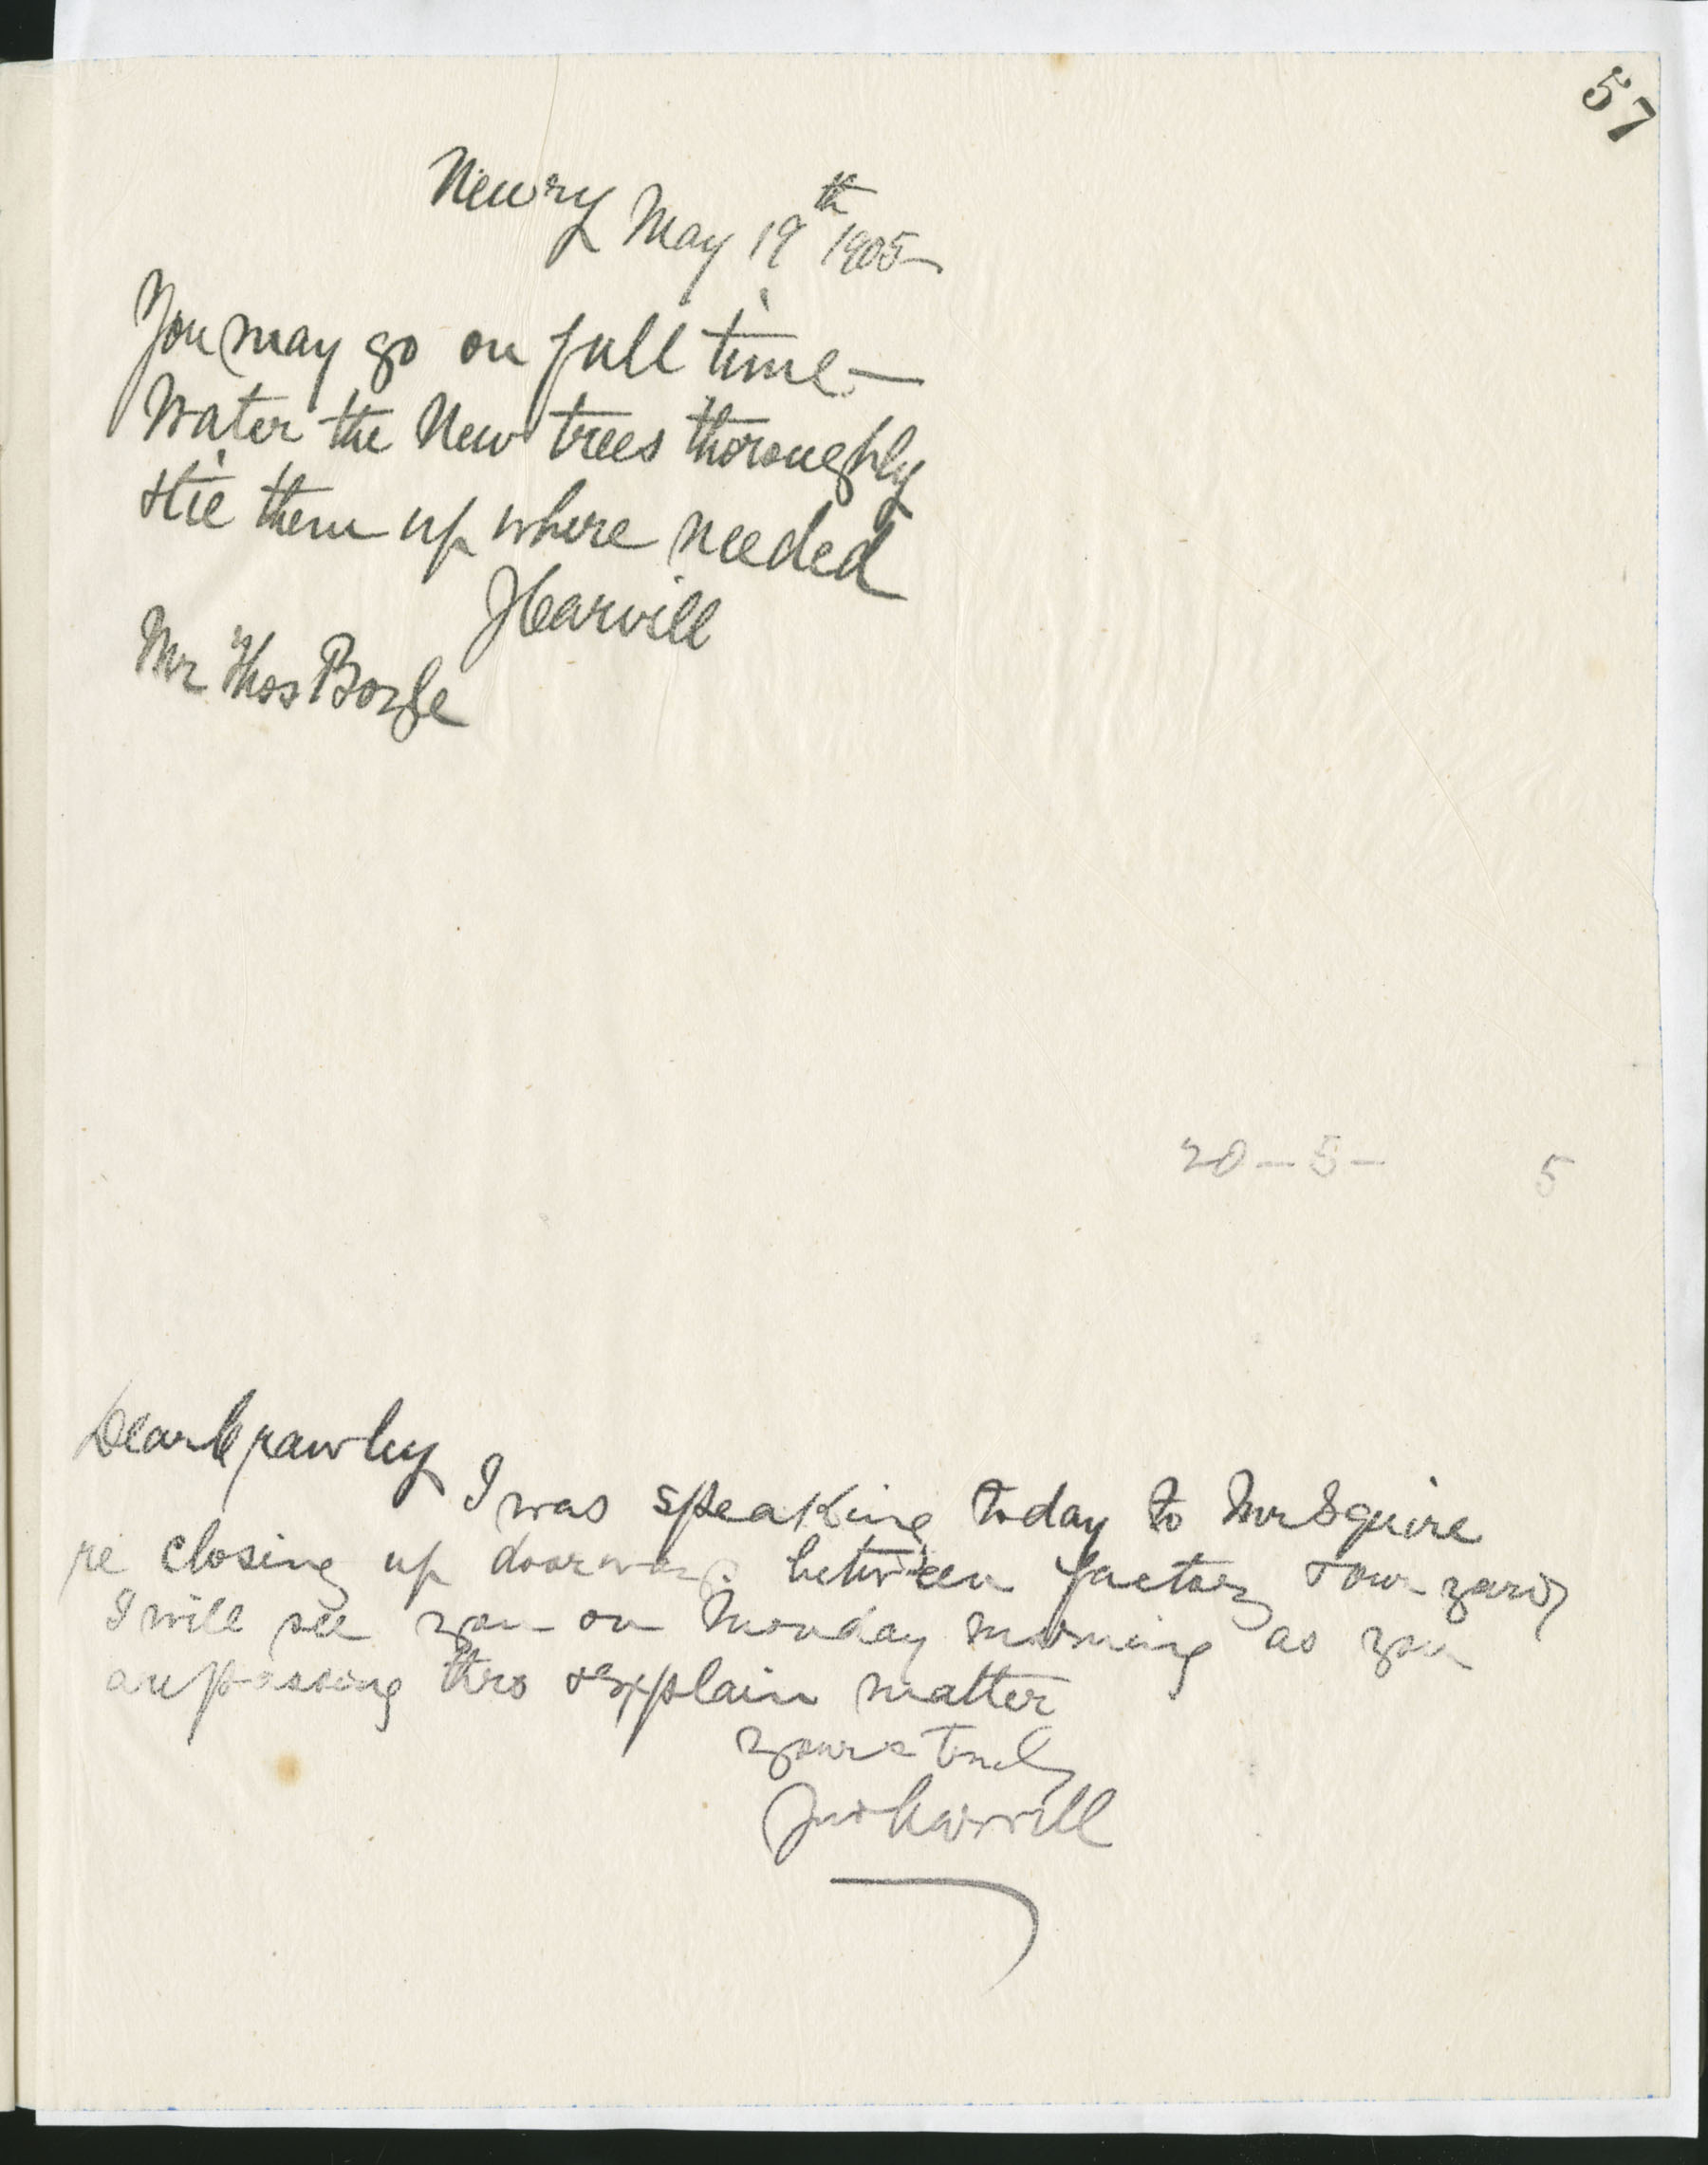 57
Newry May 19th 1905
You may go on full time—
Water the New trees thoroughly
& tie them up where needed
JCarvill
Mr Thos Boyle
20 — 5 — 5
Dear Crawley
I was speaking today to Mr Squire
re closing up doorway between factory & our yard,
I will see you on Monday morning as you
are passing thro & explain matter
yours truly
Jno Carvill